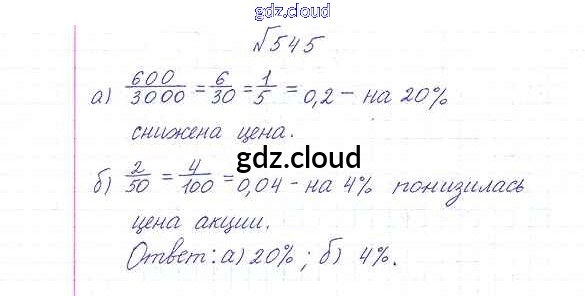 gdz.cloud
№545
а) 600/3000 = 6/30 = 1/5 = 0,2 – на 20%
снижена цена.
gdz.cloud
б) 2/50 = 4/100 = 0,04 – на 4% понизилась
цена акции.
Ответ: а) 20% ; б) 4%.